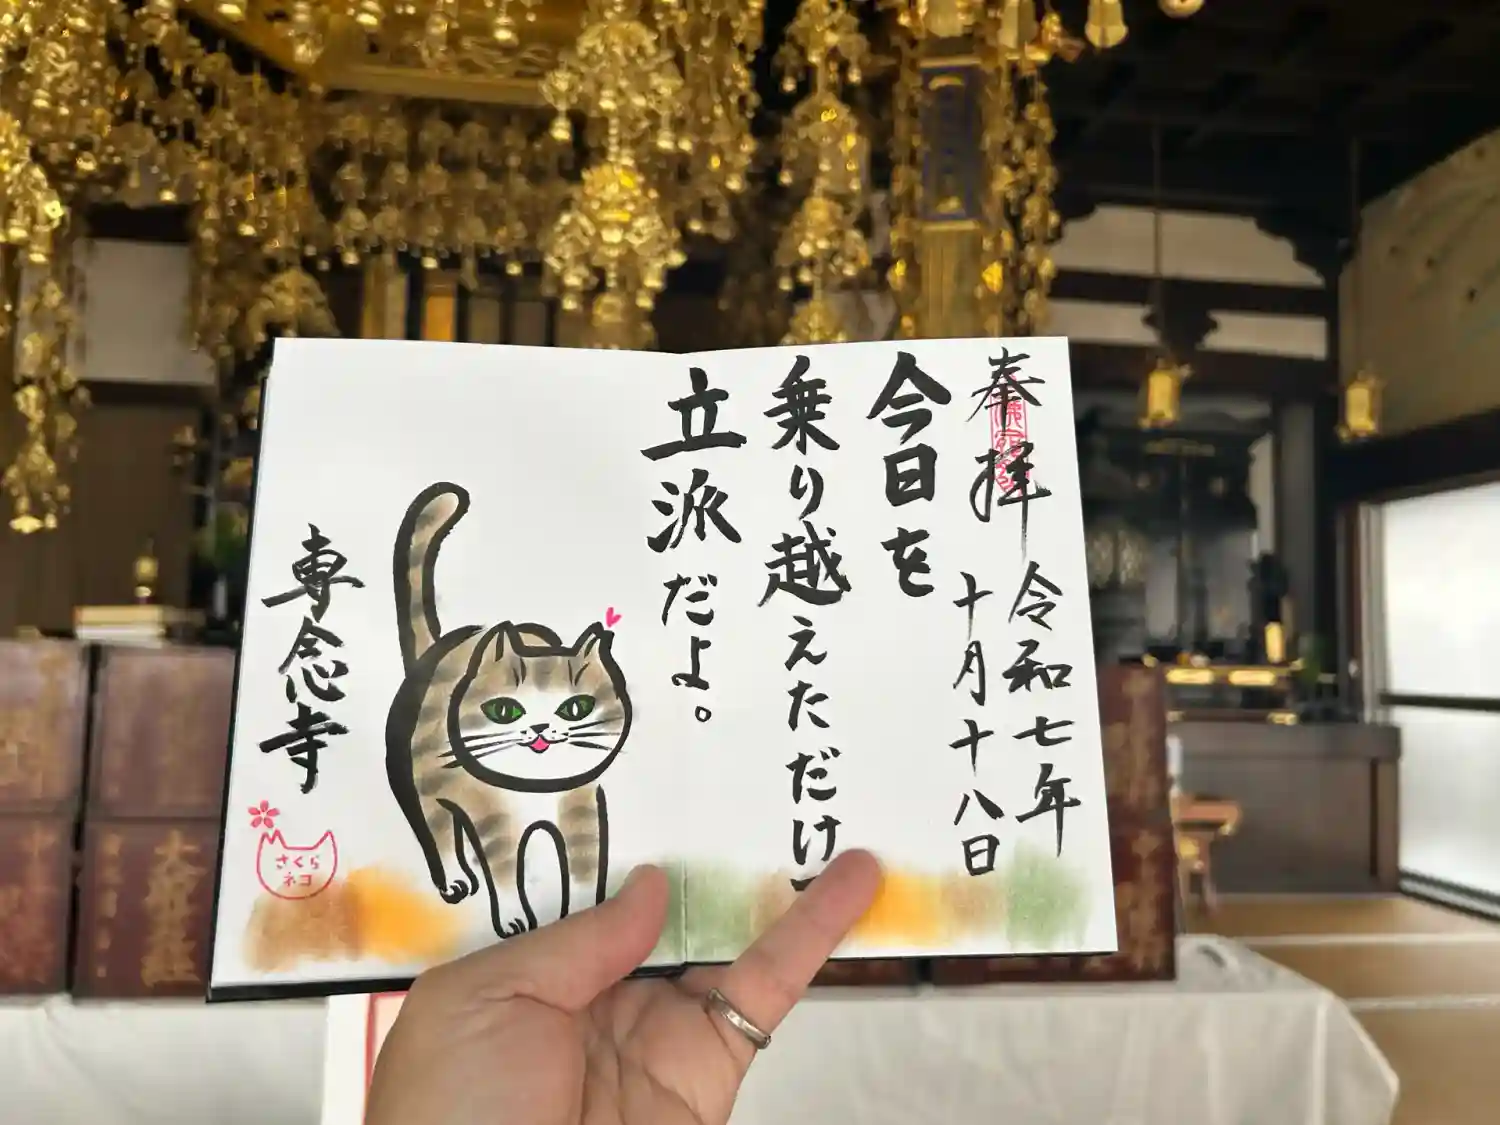 奉拝
令和七年
十月十八日
今日を
乗り越えただけ
立派だよ。
専念寺
さくら
ネコ